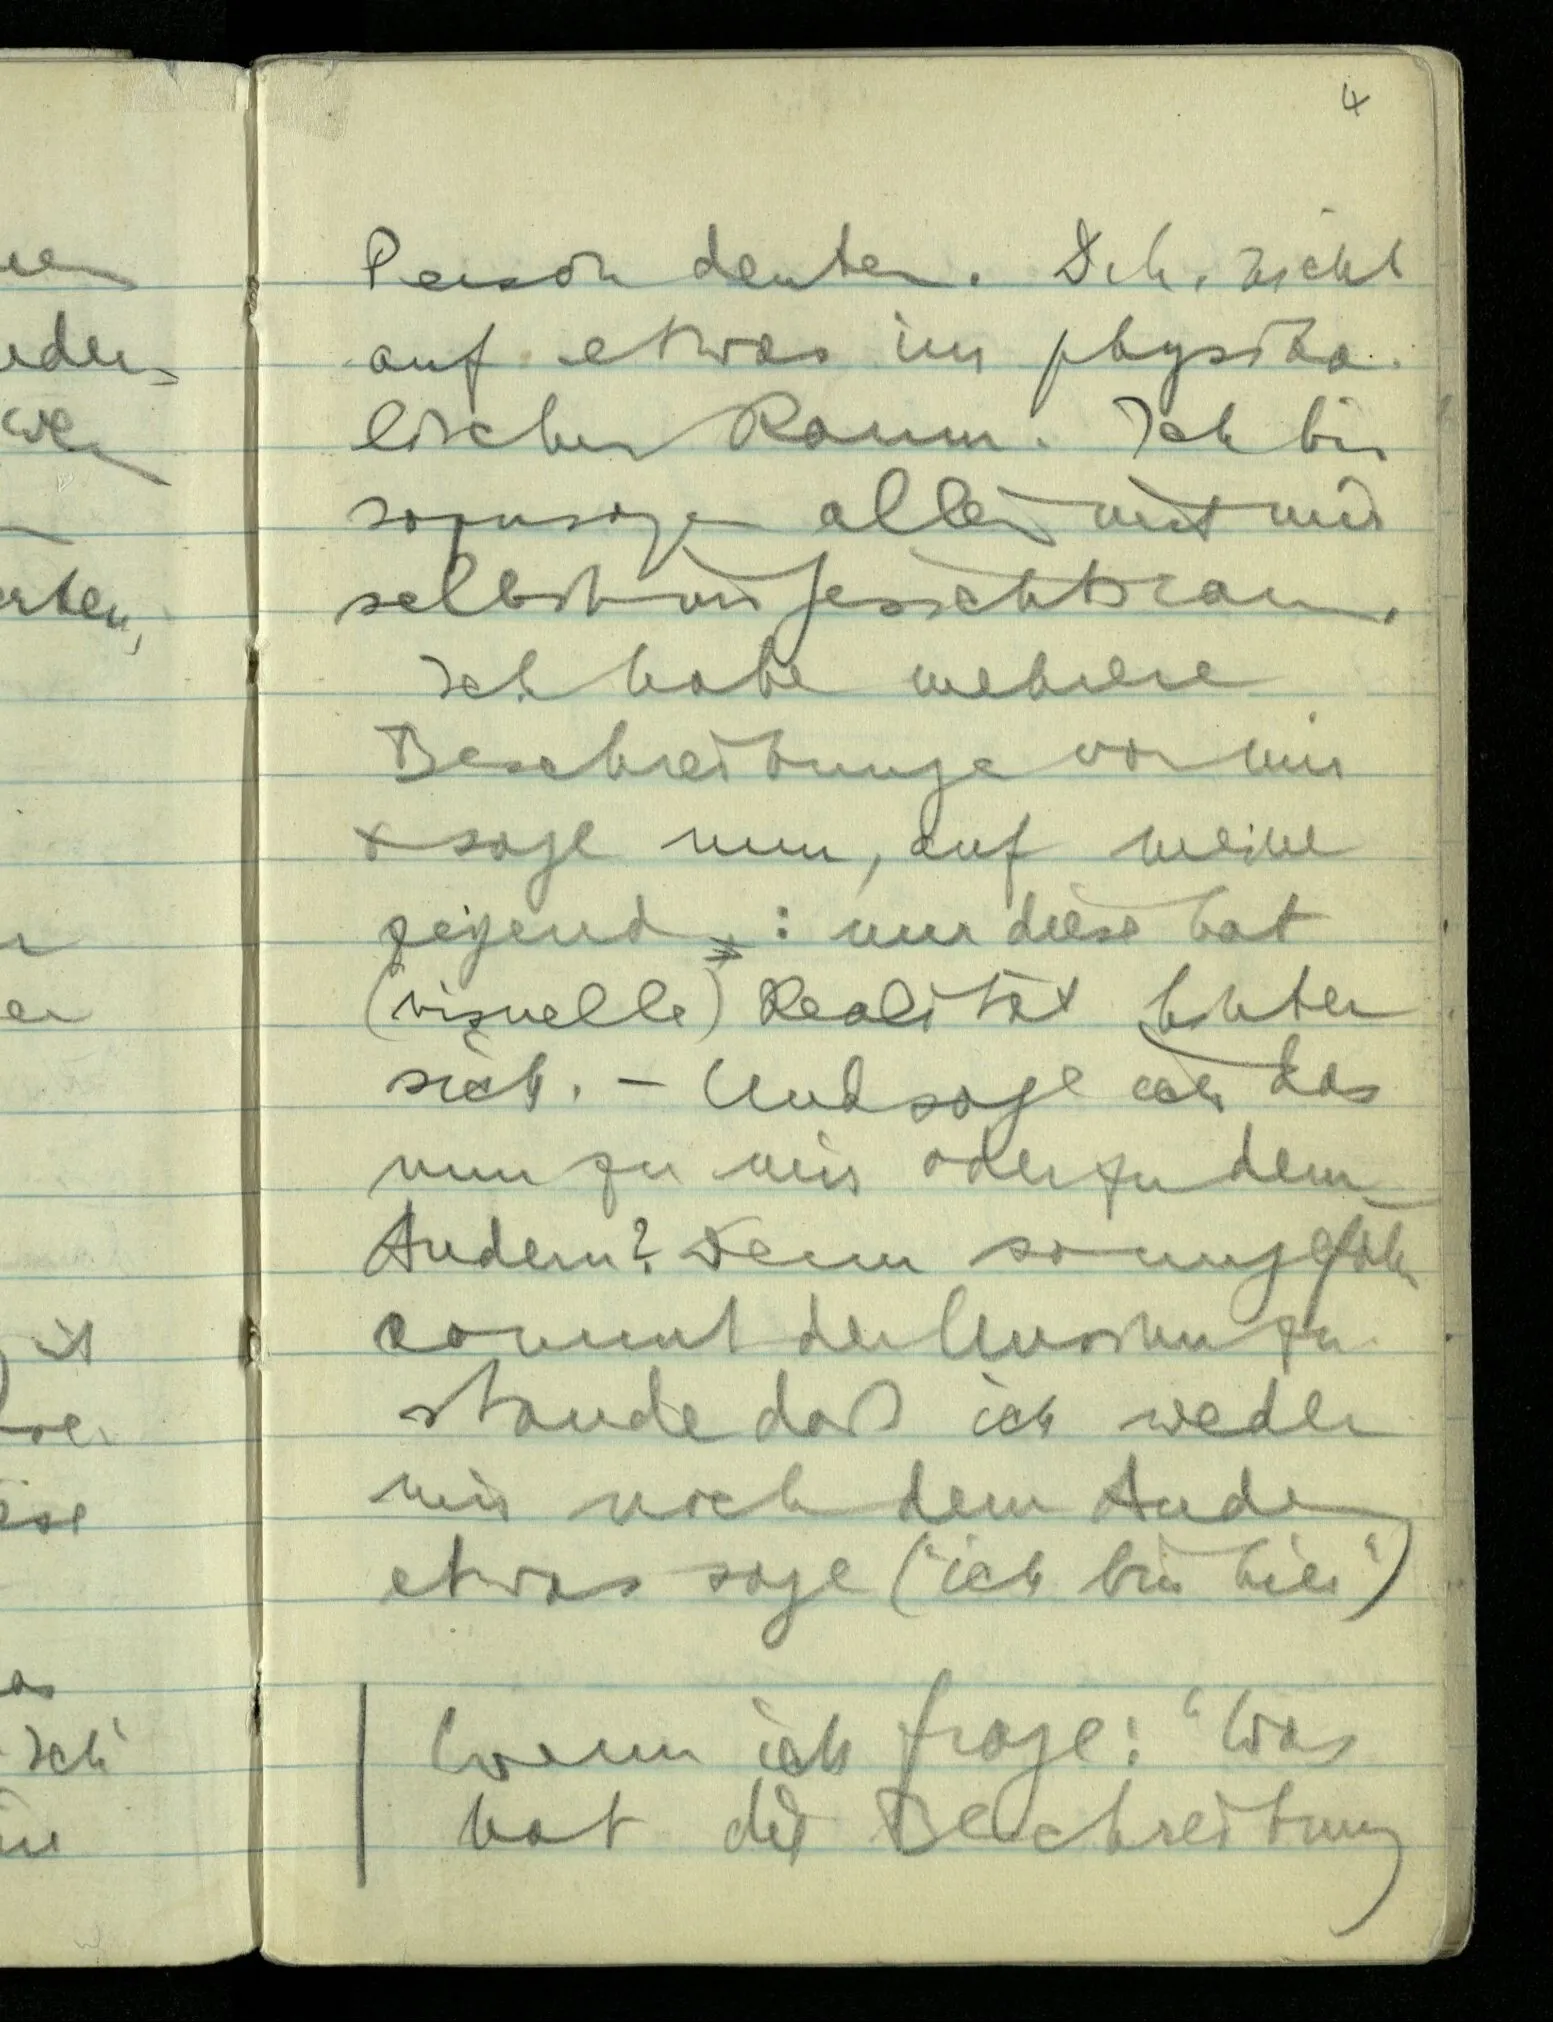 4
Person deuten. D.h. nicht
auf etwas im physika-
lischen Raum. Ich bin
sozusagen allein mit mir
selbst im Gesichtsraum.
Ich habe mehrere
Beschreibunge vor mir
& sage nun, auf meine
zeigend : nur diese hat
(visuelle) Realität hinter
sich. – Und sage ich das
nun zu mir oder zu dem
Andern? Denn so ungefähr
kommt der Unsinn zu
stande daß ich weder
mir noch dem Andern
etwas sage ("ich bin hier")
Wenn ich frage: "Was
hat die Beschreibung